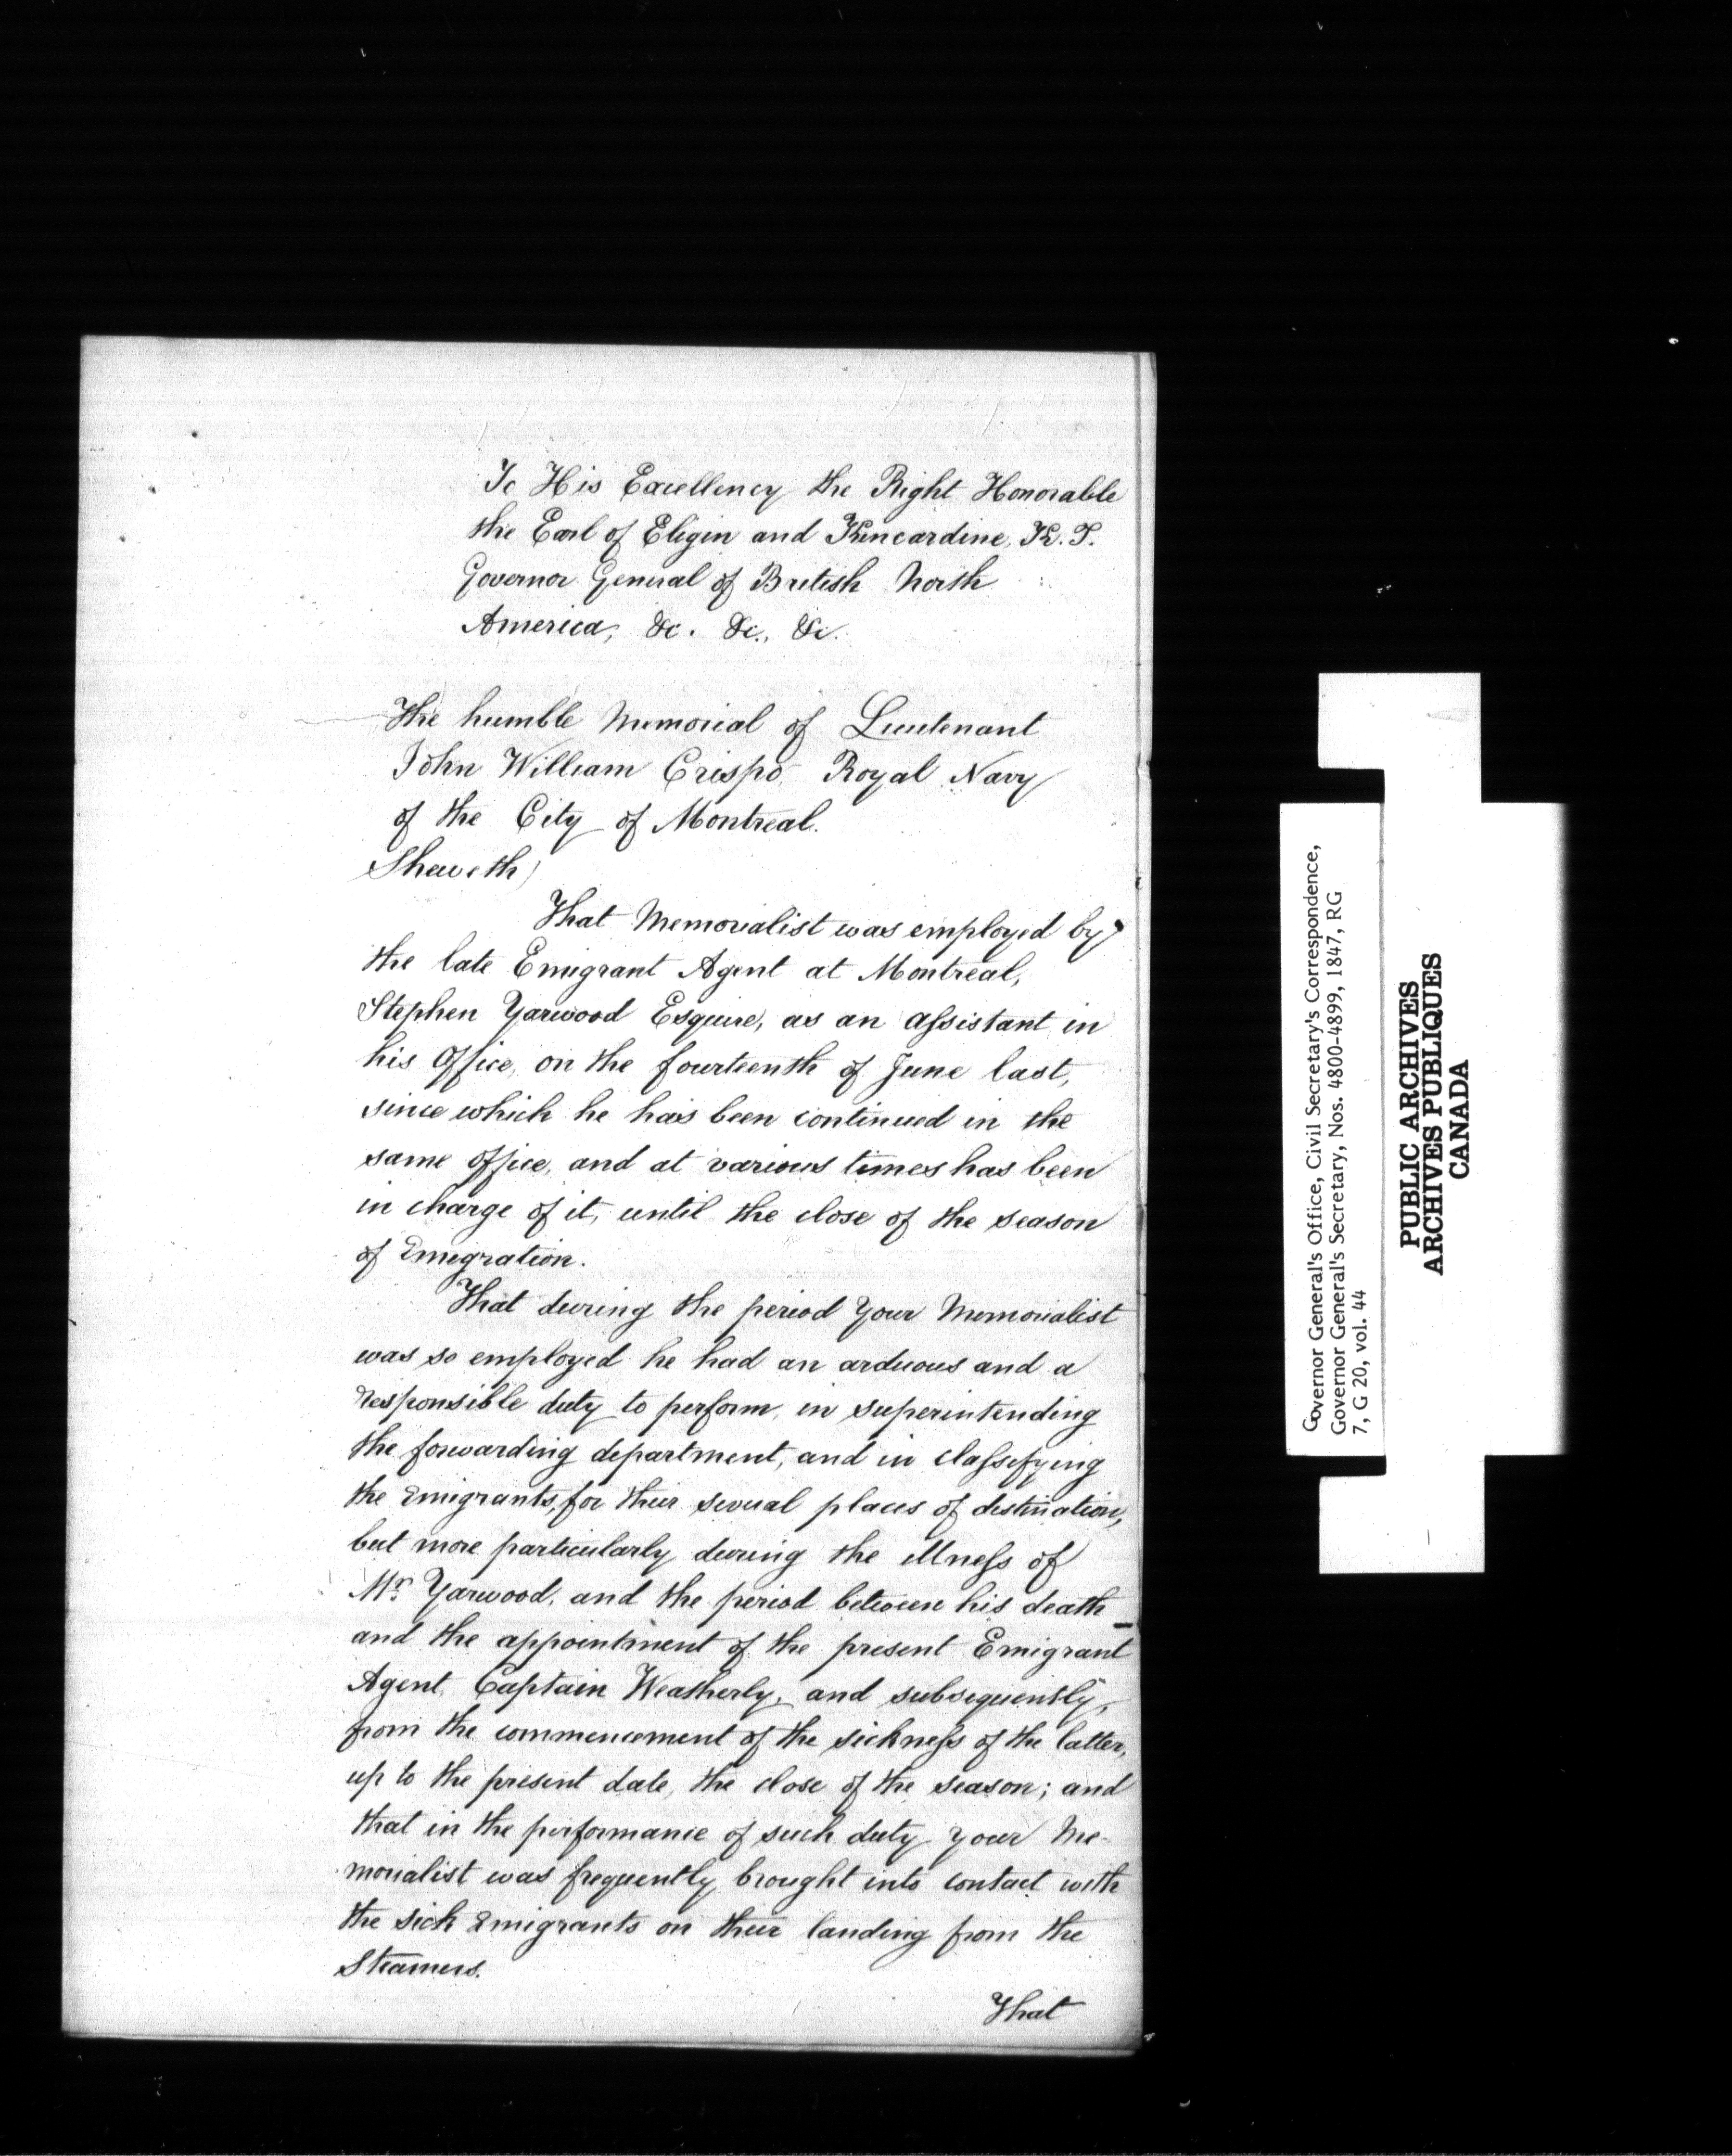 To His Excellency the Right Honorable
the Earl of Elgin and Kincardine, K. T.
Governor General of British North
America, &c. &c., &c.
The humble Memorial of Lieutenant
John William Crispo Royal Navy
of the City of Montreal.
Sheweth)
That Memorialist was employed by
the late Emigrant Agent at Montreal,
Stephen Yarwood Esquire, as an assistant in
his Office, on the fourteenth of June last,
since which he has been continued in the
same office, and at various times has been
in charge of it, until the close of the season
of Emigration.
That during the period Your Memorialist
was so employed he had an arduous and a
responsible duty to perform, in superintending
the forwarding department, and in classifying
the Emigrants, for their several places of destination,
but more particularly during the illness of
Mr. Yarwood, and the period between his death
and the appointment of the present Emigrant
Agent Captain Weatherly, and subsequently,
from the commencement of the sickness of the latter,
up to the present date, the close of the season; and
that in the performance of such duty your Me-
morialist was frequently brought into contact with
the sick Emigrants on their landing from the
Steamers.
That
Governor General's Office, Civil Secretary's Correspondence,
Governor General's Secretary, Nos. 4800-4899, 1847, RG
7, G 20, vol. 44
PUBLIC ARCHIVES
ARCHIVES PUBLIQUES
CANADA